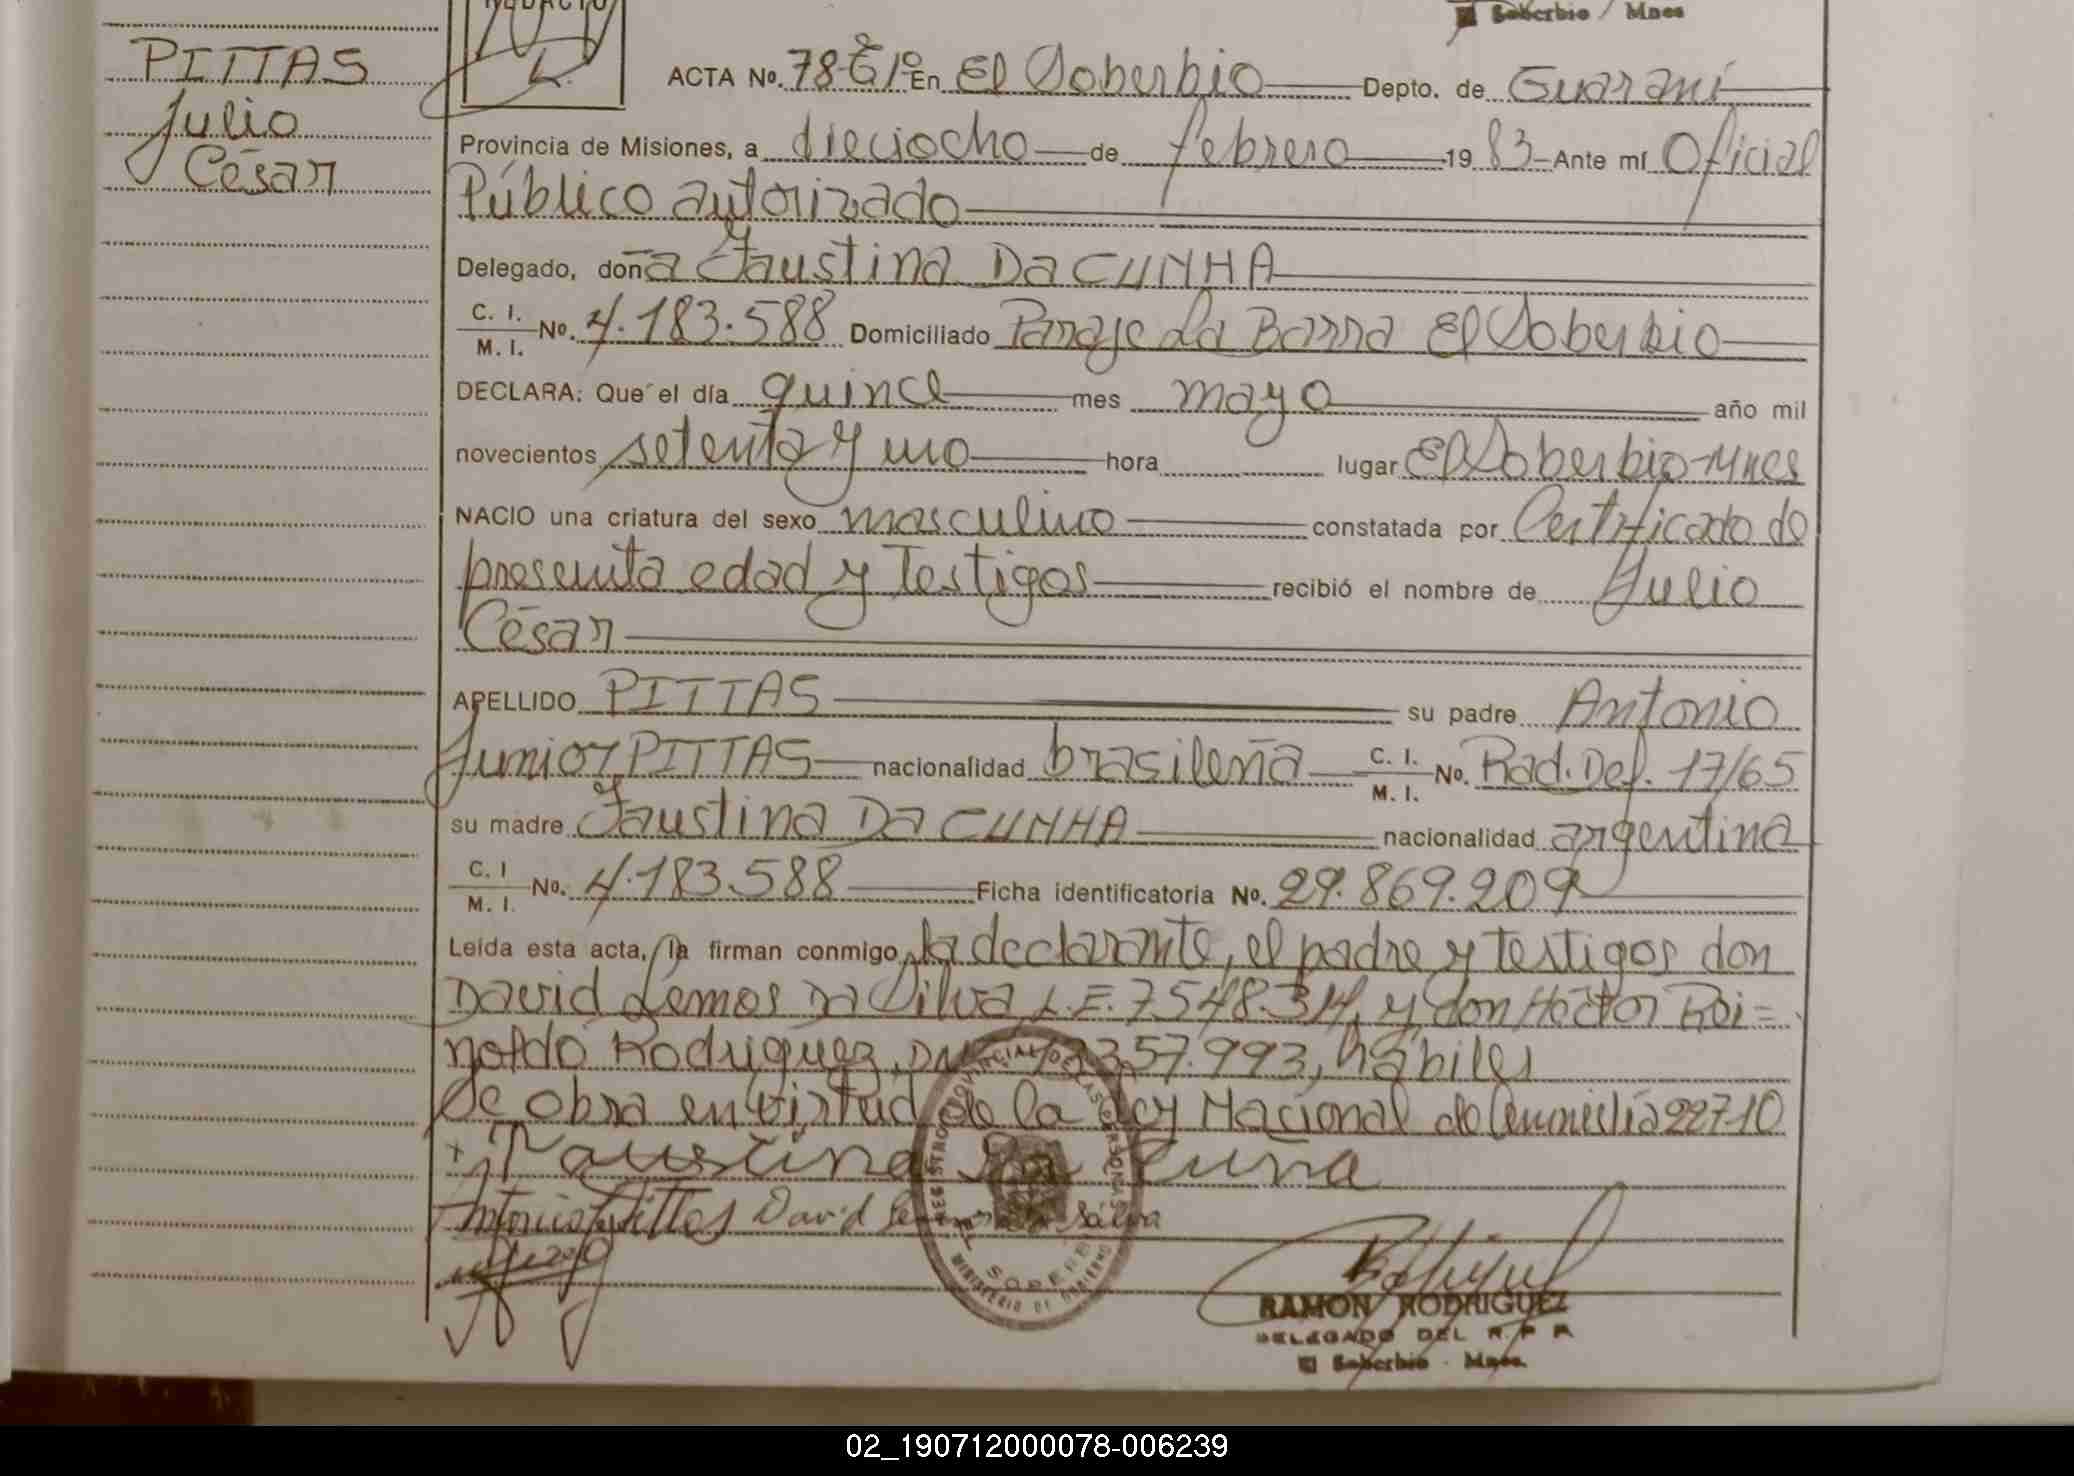 PITTAS
Julio
César
REDACTO
Soberbio / Mnes
ACTA No. 78 En El Soberbio Depto. de Guaraní
Provincia de Misiones, a dieciocho de febrero 1983 Ante mí Oficial
Público autorizado
Delegado, doña Faustina Da CUNHA
C. I. M. I. No. 4.183.588 Domiciliado Paraje La Barra El Soberbio
DECLARA: Que el día quince mes mayo año mil
novecientos setenta y uno hora lugar El Soberbio-Mnes
NACIO una criatura del sexo masculino constatada por Certificado de
presunta edad y Testigos recibió el nombre de Julio
César
APELLIDO PITTAS su padre Antonio
Junior PITTAS nacionalidad brasileña C. I. M. I. No. Rad. Def. 17/65
su madre Faustina Da CUNHA nacionalidad argentina
C. I M. I. No. 4.183.588 Ficha identificatoria No. 29.869.209
Leída esta acta, la firman conmigo la declarante, el padre y testigos don
David Lemos Da Silva, L.E. 7548.314, y don Héctor Rei=
noldo Rodriguez, 357.993, hábiles
Se obra en virtud de la Ley Nacional de Amnistía 22710
Faustina Da Cuna
Antonio Pittas David Silva
REGISTRO PROVINCIAL DE LAS PERSONAS
MINISTERIO DE GOBIERNO
RAMON RODRIGUEZ
DELEGADO DEL R. P. P.
El Soberbio - Mnes.
02_190712000078-006239